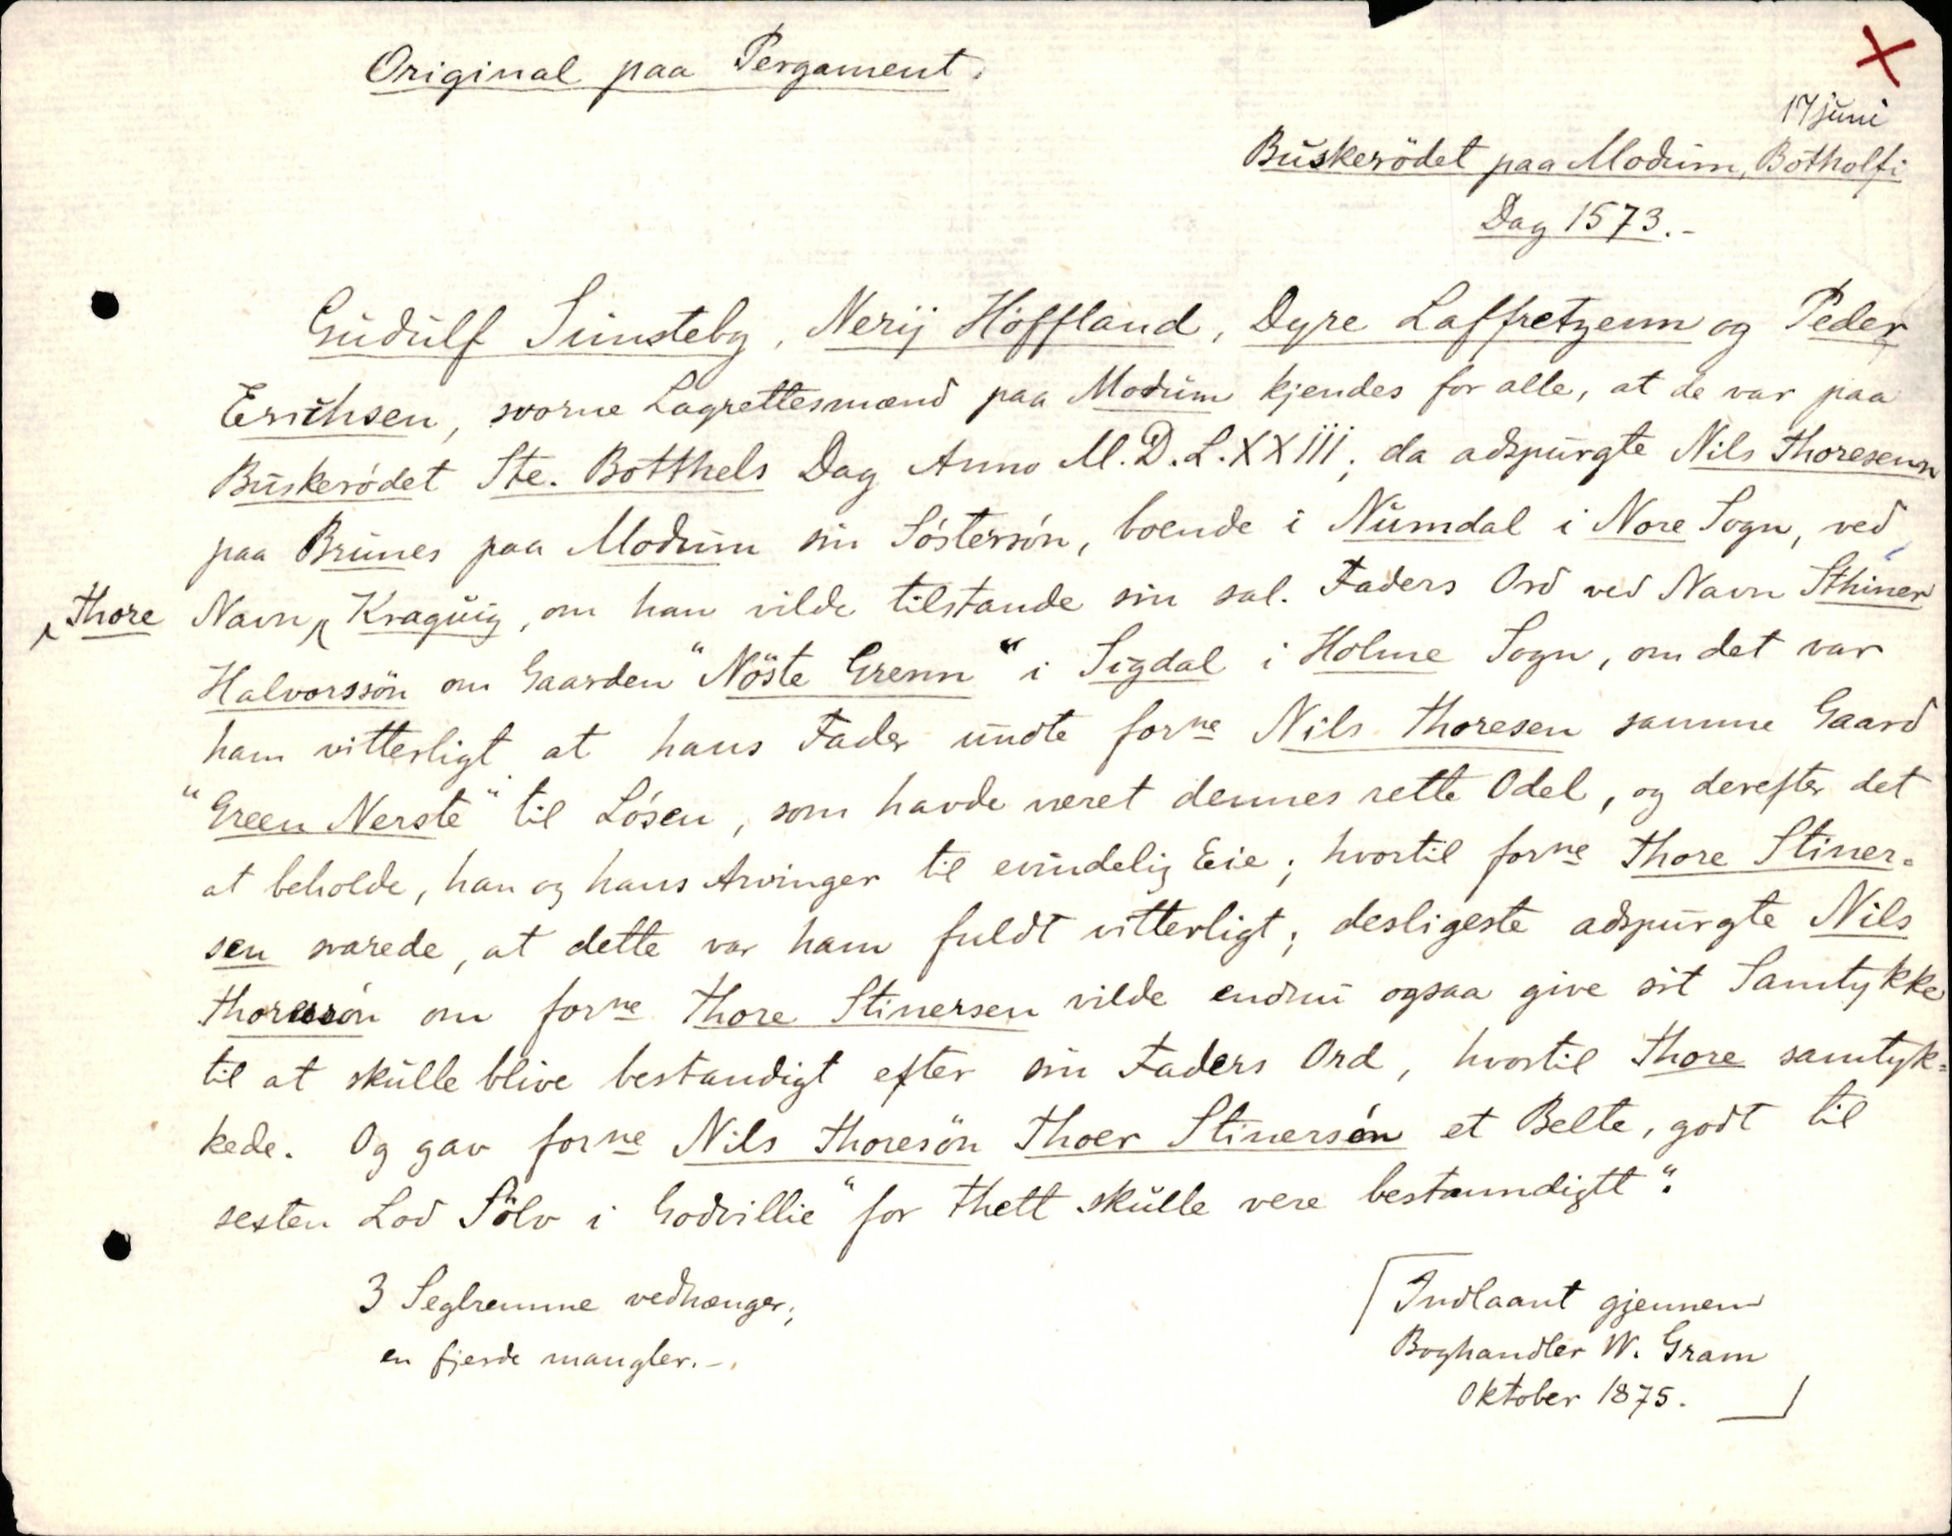 Original paa Pergament.
17 juni
Buskerödet paa Modum, Botholfi
Dag 1573.-
Gudulf Simsteby, Nerij Höffland, Dyre Laffretzenn og Peder
Erichsen, svorne Lagrettesmænd paa Modum kjendes for alle, at de var paa
Buskerödet Ste. Botthels Dag Anno M.D.L.XXIII; da adspurgte Nils Thoresenn
paa Brunes paa Modum sin Söstersön, boende i Numdal i Nore Sogn, ved
Thore Navn Kraguig, om han vilde tilstande sin sal. Faders Ord ved Navn Sthiner
Halvorssön om Gaarden "Nöste Grenn" i Sigdal i Holme Sogn, om det var
ham vitterligt at hans Fader undte forne Nils Thoresen samme Gaard
"Green Nerste" til Lösen, som havde været dennes rette Odel, og derefter det
at beholde, han og hans Arvinger til evindelig Eie; hvortil forne Thore Stiner-
sen svarede, at dette var ham fuldt vitterligt; desligeste adspurgte Nils
Thoressön om forne Thore Stinersen vilde endnu ogsaa give sit Samtykke
til at skulle blive bestandigt efter sin Faders Ord, hvortil Thore samtyk-
kede. Og gav forne Nils Thoresön Thoer Stinersön et Belte, godt til
sexten Lod Sölv i Godvillie "for thett skulle vere bestanndigtt".
3 Seglremme vedhænger;
en fjerde mangler.-.
Indlaant gjennem
Boghandler W. Gram
Oktober 1875.